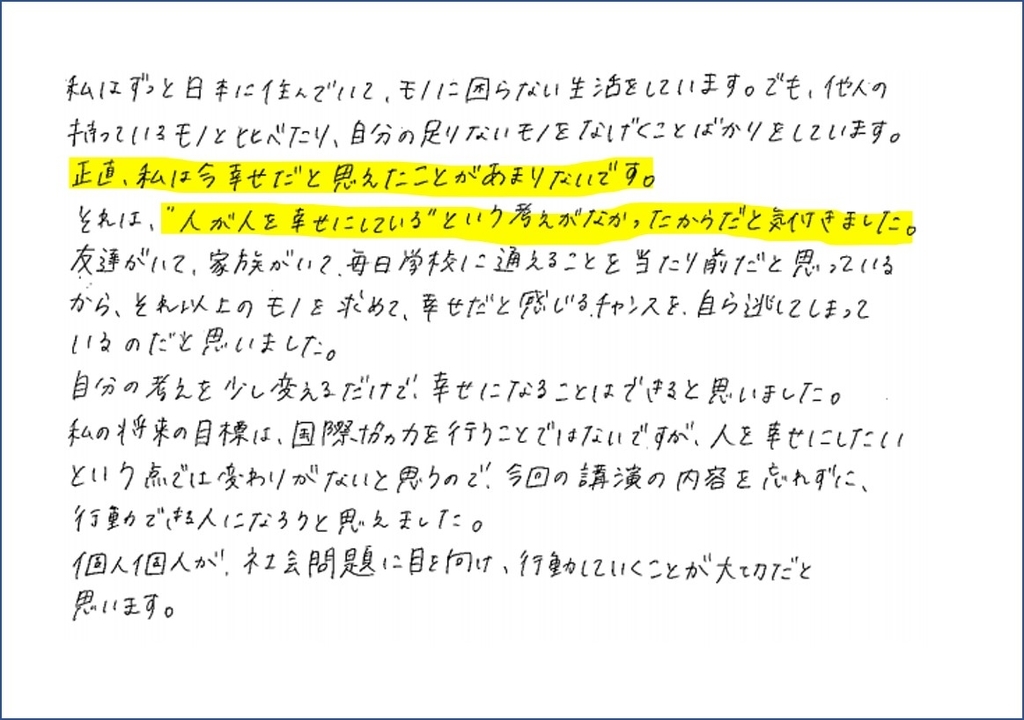 私はずっと日本に住んでいて、モノに困らない生活をしています。でも、他人の
持っているモノと比べたり、自分の足りないモノをなげくことばかりをしています。
正直、私は今幸せだと思えたことがあまりないです。
それは、"人が人を幸せにしている"という考えがなかったからだと気付きました。
友達がいて、家族がいて、毎日学校に通えることを当たり前だと思っている
から、それ以上のモノを求めて、幸せだと感じるチャンスを、自ら逃してしまって
いるのだと思いました。
自分の考えを少し変えるだけで、幸せになることはできると思いました。
私の将来の目標は、国際協力を行うことではないですが、人を幸せにしたい
という点では変わりがないと思うので、今回の講演の内容を忘れずに、
行動できる人になろうと思えました。
個人個人が、社会問題に目を向け、行動していくことが大切だと
思います。